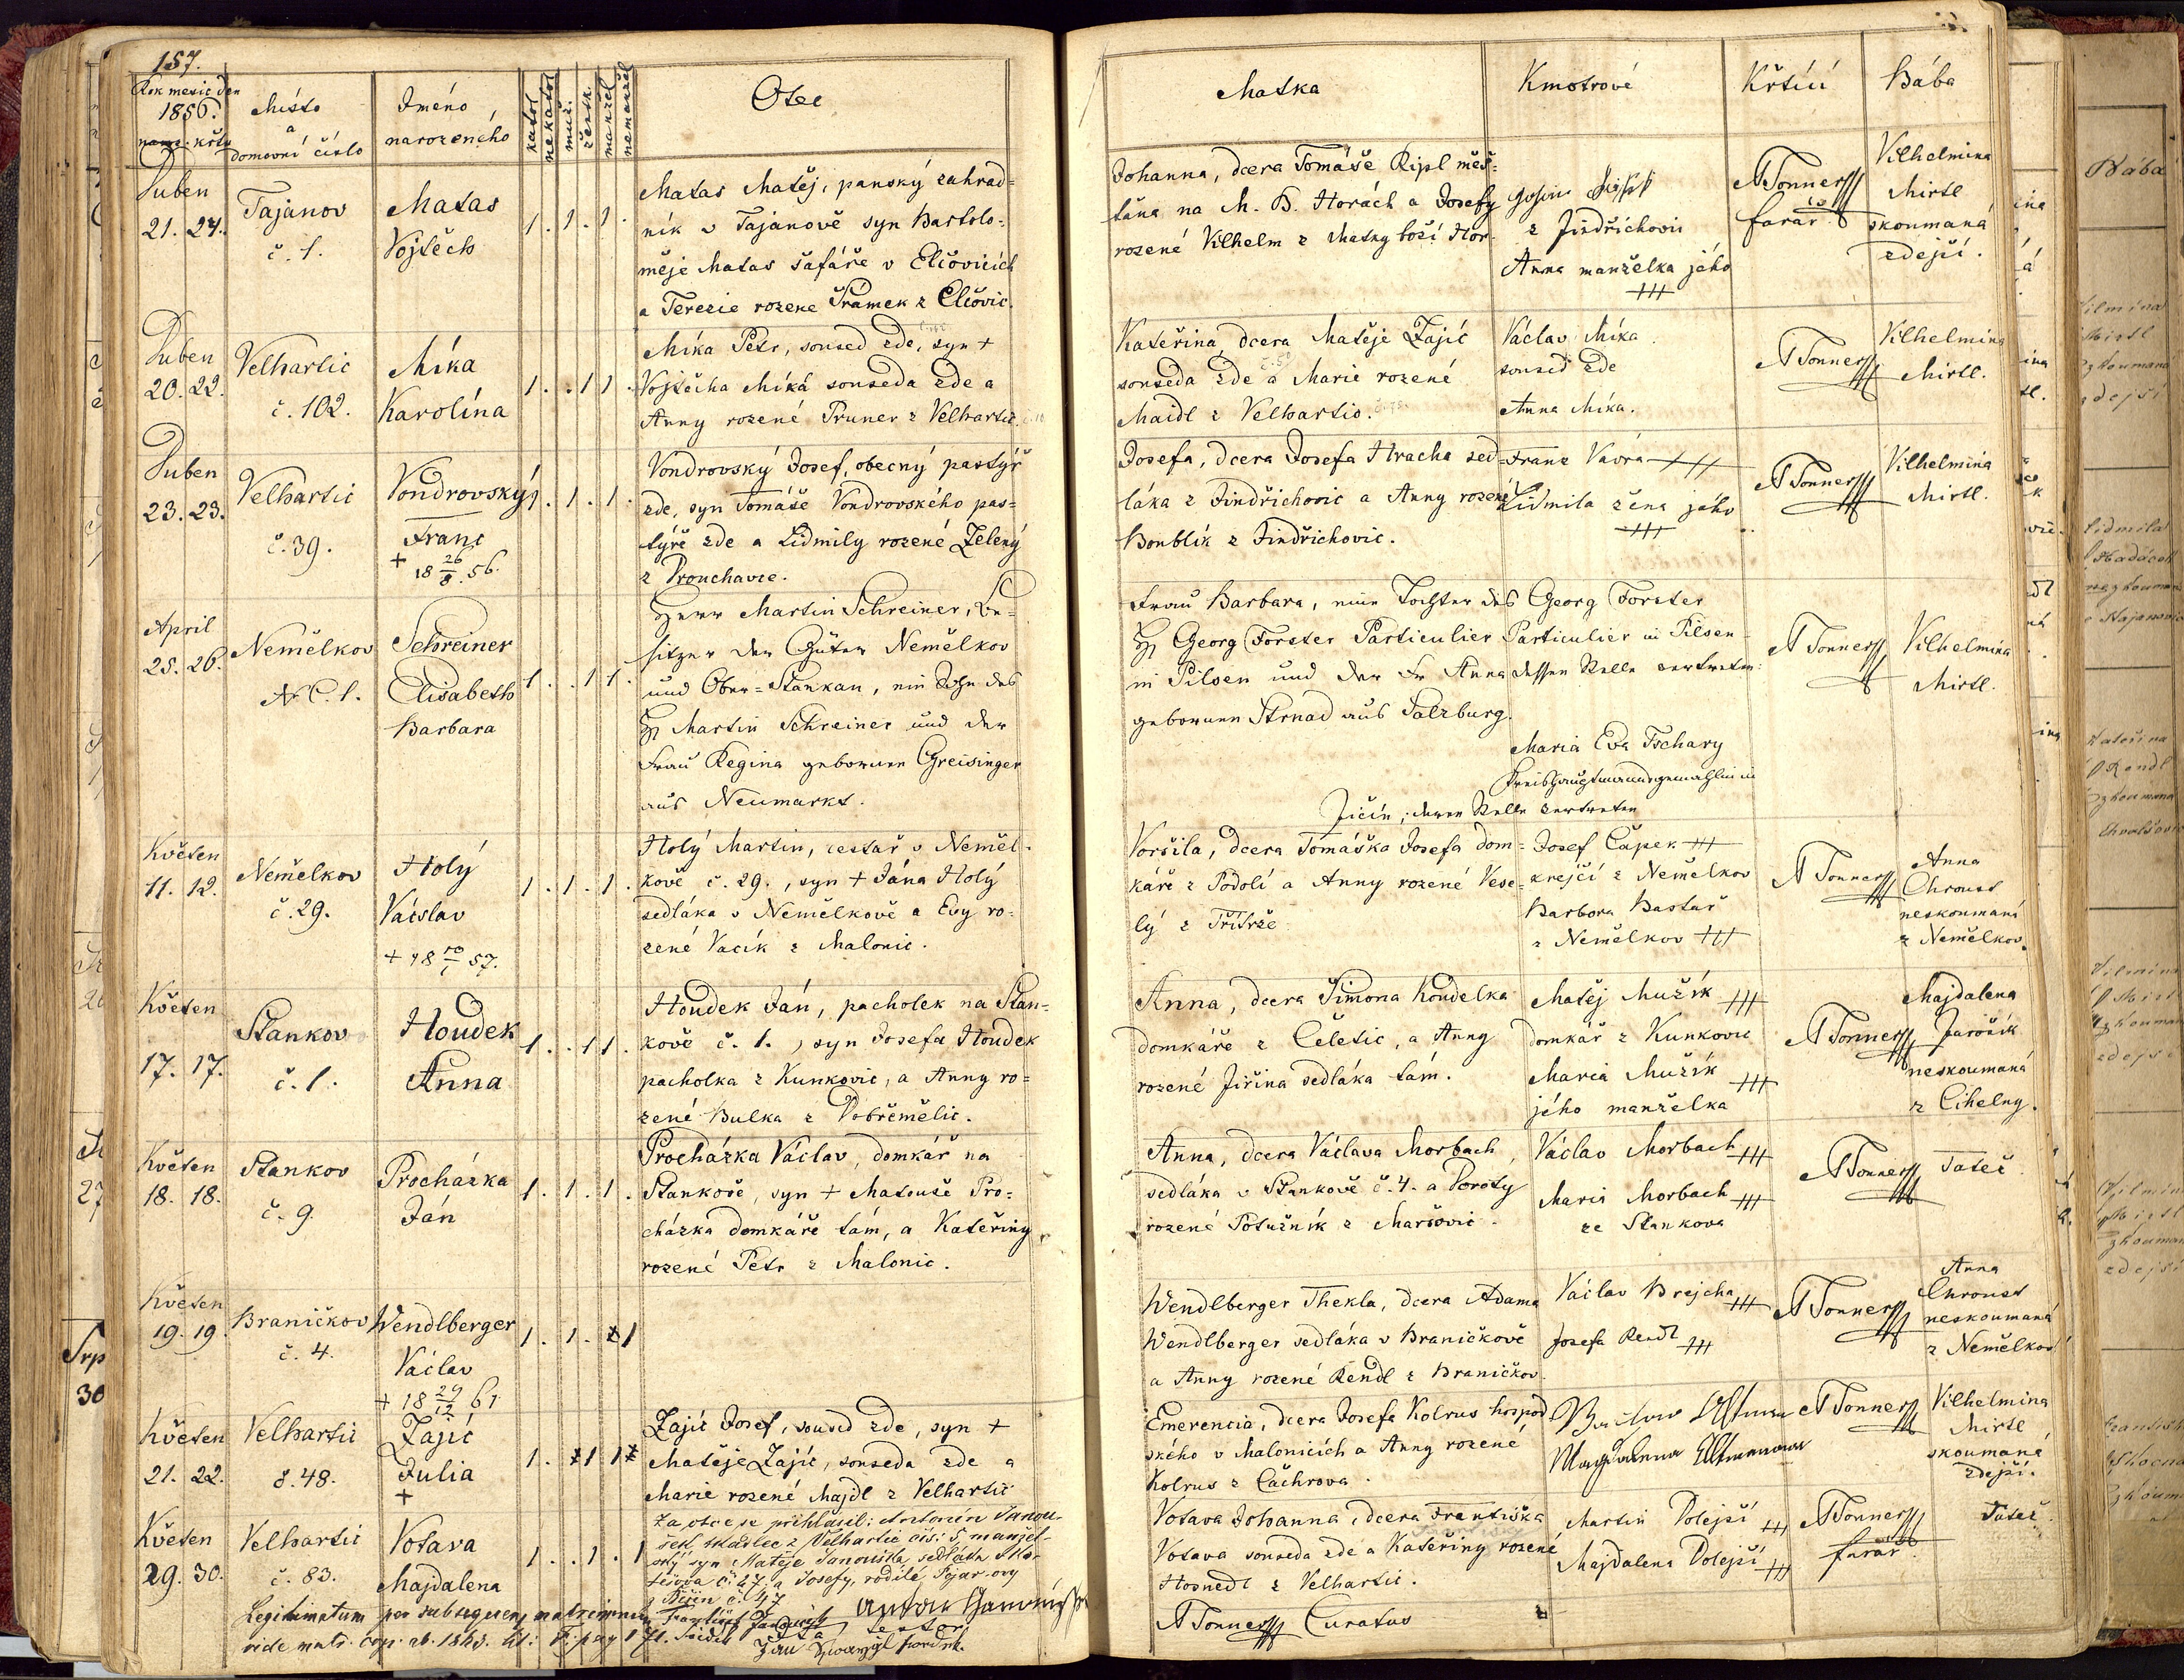 157.
Rok mesic den
1856.
naro. křtu
Místo
a
domovní číslo
Jméno
narozeného
katol
nekatol
muž.
žensk.
manžel
nemanžel
Otec
Matka
Kmotrové
Křtící
Bába
Duben
21. 24.
Tajanov
č. 1.
Matas
Vojtěch
1. 1. 1.
Matas Matěj, panský zahrad=
ník v Tajanově syn Bartolo=
měje Matas šafáře v Elčovicích
a Terezie rozene Šrámek z Elčovic.
Johanna, dcera Tomáše Ripl měš=
ťana na M. B. Horách a Josefy
rozené Vilhelm z Matky boží Hor.
z Jindřichovic
Anna manželka jého
+++
A Tonner
farář
Vilhelmina
Mirtl
skoumaná
zdejší.
Duben
20. 22.
Velhartic
č. 102.
Míka
Karolína
1. . 1 1.
Míka Petr, soused zde, syn +
Vojtěcha Míká souseda zde a
Anny rozené Pruner z Velhartic.
Kateřina, dcera Matěje Zajíc
souseda zde a Marie rozené
Maidl z Velhartic.
Václav Míka
soused zde
Anna Míka.
A Tonner
Vilhelmina
Mirtl.
Duben
23. 23.
Velhartic
č. 39.
Vondrovský
Franc
+ 18 26/8 56.
1. 1. 1.
Vondrovský Josef, obecný pastýř
zde, syn Tomáše Vondrovského pas=
týře zde a Lidmily rozené Zelený
z Prouchavze.
Josefa, dcera Josefa Hracha sed=
láka z Jindřichovic a Anny rozené
Boublík z Jindřichovic.
Franz Vavra +++
Lidmila žena jého
+++
A Tonner
Vilhelmina
Mirtl.
April
25. 26.
Nemělkov
N. C. 1.
Schreiner
Elisabeth
Barbara
1. . 1 1.
Herr Martin Schreiner, Be=
sitzer der Güter Nemělkov
und Ober=Stankau, ein Sohn des
H Martin Schreiner und der
Frau Regina gebornen Greisinger
aus Neumarkt.
Frau Barbara, eine Tochter des
H Georg Forster Particulier
in Pilsen und der Fr Anna
gebornen Strnad aus Salzburg.
Georg Forster
Particulier in Pilsen
dessen Stelle vertreten:
Maria Eva Tschary
Kreishauptmannsgemahlin in
Jičín, deren Stelle vertreten
A Tonner
Vilhelmina
Mirtl.
Květen
11. 12.
Nemělkov
č. 29.
Holý
Václav
+ 18 10/1 57.
1. 1. 1.
Holý Martin, cestař v Neměl=
kově č. 29., syn + Jána Holý
sedláka v Nemělkově a Evy ro=
zené Vacík z Malonic.
Voršila, dcera Tomáška Josefa dom=
káře z Podolí a Anny rozené Vese=
lý z Třítrže
Josef Čapek +++
krejčí z Nemělkov
Barbora Bastař
z Nemělkov +++
A Tonner
Anna
Chroust
neskoumaná
z Nemělkov.
Květen
17. 17.
Stankov
č. 1.
Houdek
Anna
1. . 1 1.
Houdek Ján, pacholek na Stan=
kově č. 1., syn Josefa Houdek
pacholka z Kunkovic, a Anny ro=
zené Bulka z Dobřemělic.
Anna, dcera Šimona Koudelka
domkáře z Čeletic, a Anny
rozené Jiřina sedláka tám.
Matěj Mužík +++
domkář z Kunkovic
Maria Mužík +++
jého manželka
A Tonner
Majdalena
Jarošík
neskoumaná
z Cihelny.
Květen
18. 18.
Stankov
č. 9.
Procházka
Ján
1. 1. 1.
Procházka Václav, domkář na
Stankově, syn + Matouše Pro=
cházka domkáře tám, a Kateřiny
rozené Petr z Malonic.
Anna, dcera Václava Morbach,
sedláka v Stankově č. 4. a Doroty
rozené Potužník z Maršovic.
Václav Morbach +++
Maria Morbach +++
ze Stankova
A Tonner
Tatéž.
Květen
19. 19.
Braničkov
č. 4.
Wendlberger
Václav
+ 18 29/12 61
1. 1. 1
Wendlberger Thekla, dcera Adama
Wendlberger sedláka v Braničkově
a Anny rozené Rendl z Braničkov.
Václav Brejcha +++
Josefa Rendl +++
A Tonner
Anna
Chroust
neskoumaná
z Nemělkov
Květen
21. 22.
Velhartic
č. 48.
Zajíc
Julia
+
1. 1 1
Zajíc Josef, soused zde, syn +
Matěje Zajíc, souseda zde a
Marie rozené Majdl z Velhartic
Emerencia, dcera Josefa Kolrus hospod
ského v Malonicích a Anny rozené
Kolrus z Čachrova.
Magdalena
A Tonner
Vilhelmina
Mirtl
skoumaná
zdejší.
Květen
29. 30.
Velhartic
č. 83.
Votava
Majdalena
1. . 1. 1
Za otce se přihlásil: Antonín Janou-
šek, tkadlec z Velhartic čís: 5, manžel-
ský syn Matěje Janouška, sedláka
č. 27, a Josefy, rodilé
č. 47
Votava Johanna, dcera Františka
Votava souseda zde a Kateřiny rozené
Hosnedl z Velhartic.
A Tonner Curatus
Martin Dolejší +++
Majdalena Dolejší +++
A Tonner
farář.
Tatéž.
Legitimatum per subsequens matrimonium
vide matr. cop.